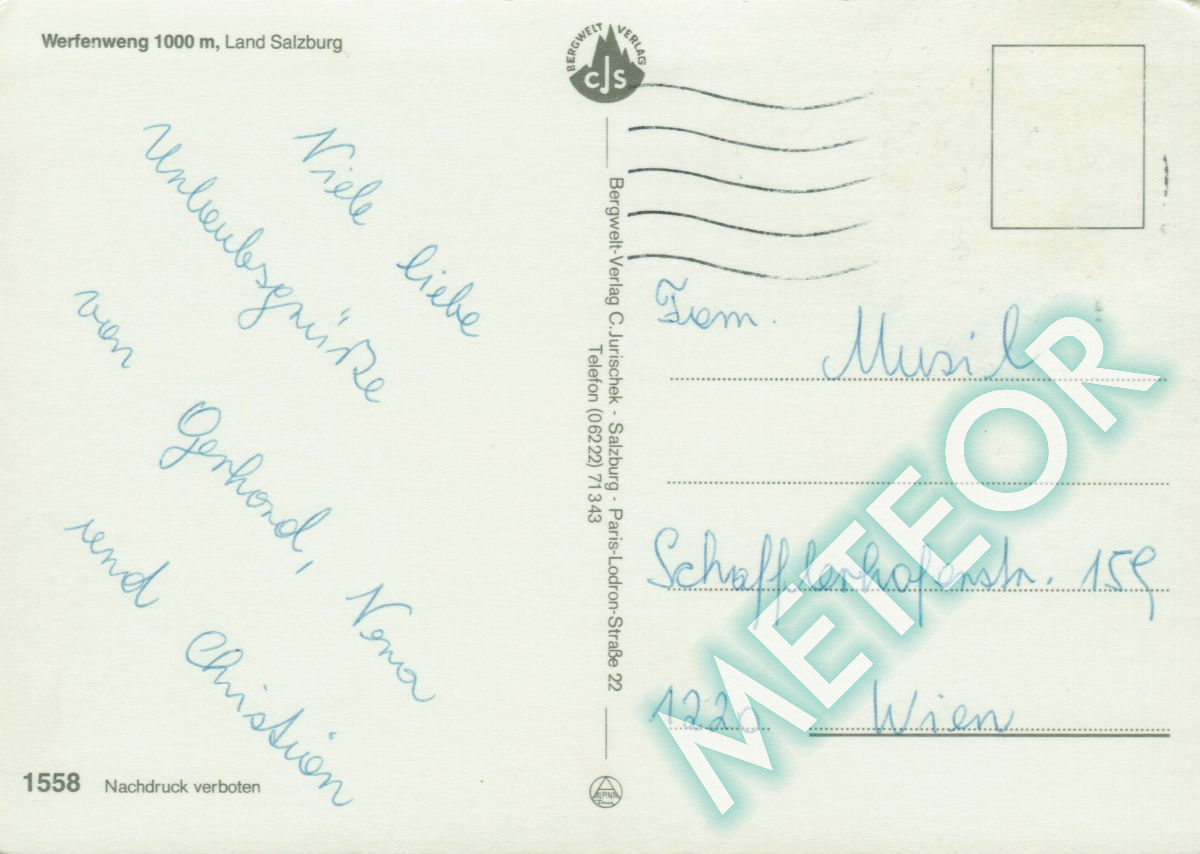 Werfenweng 1000 m, Land Salzburg
Viele liebe
Urlaubsgrüße
von
Gerhard,
und Christian
1558 Nachdruck verboten
BERGWELT VERLAG
CJS
Bergwelt-Verlag C.Jurischek - Salzburg - Paris-Lodron-Straße 22
Telefon (06222) 71343
ALPINA
Fam. Musil
Schafflerhoferstr. 159
1220 Wien
METEOR